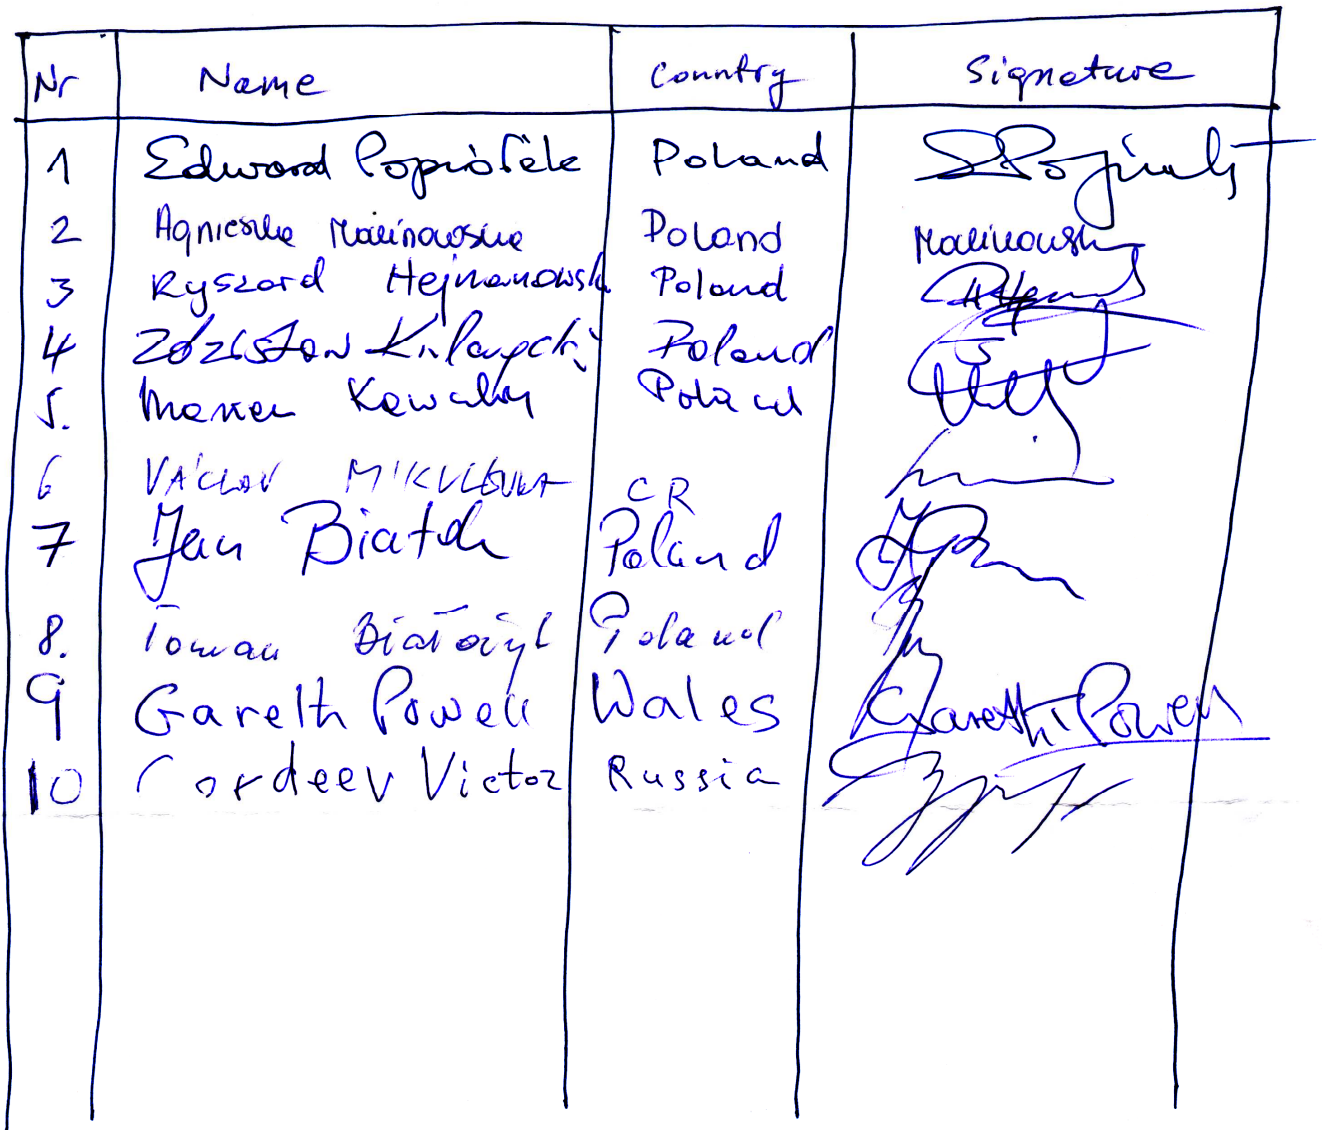 Nr Name Country Signature
1 Edward Popiołek Poland
2 Agnieszka Malinowska Poland Malinowska
3 Ryszard Hejmanowski Poland
4 Zdzisław Poland
5. Marek Kawalny Poland
6 VÁCLAV CR
7 Jan Białek Poland
8. Roman Białożyt Poland
9 Gareth Powell Wales Gareth Powell
10 Gordeev Victor Russia